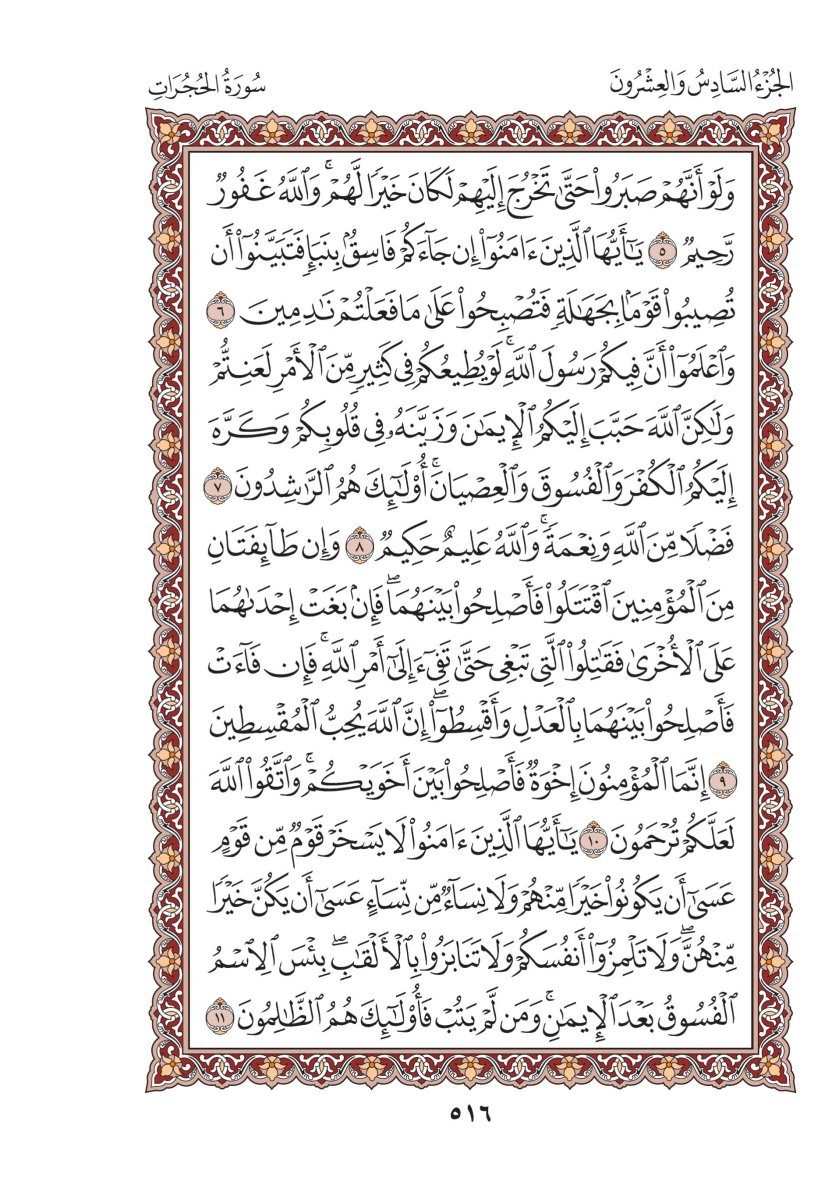 الجُزْءُ السَّادِسُ وَالعِشْرُونَ
سُورَةُ الحُجُرَاتِ
وَلَوْ أَنَّهُمْ صَبَرُوا۟ حَتَّىٰ تَخْرُجَ إِلَيْهِمْ لَكَانَ خَيْرًا لَّهُمْ ۚ وَٱللَّهُ غَفُورٌ
رَّحِيمٌ ٥ يَـٰٓأَيُّهَا ٱلَّذِينَ ءَامَنُوٓا۟ إِن جَآءَكُمْ فَاسِقٌۢ بِنَبَإٍ فَتَبَيَّنُوٓا۟ أَن
تُصِيبُوا۟ قَوْمًۢا بِجَهَـٰلَةٍ فَتُصْبِحُوا۟ عَلَىٰ مَا فَعَلْتُمْ نَـٰدِمِينَ ٦
وَٱعْلَمُوٓا۟ أَنَّ فِيكُمْ رَسُولَ ٱللَّهِ ۚ لَوْ يُطِيعُكُمْ فِى كَثِيرٍ مِّنَ ٱلْأَمْرِ لَعَنِتُّمْ
وَلَـٰكِنَّ ٱللَّهَ حَبَّبَ إِلَيْكُمُ ٱلْإِيمَـٰنَ وَزَيَّنَهُۥ فِى قُلُوبِكُمْ وَكَرَّهَ
إِلَيْكُمُ ٱلْكُفْرَ وَٱلْفُسُوقَ وَٱلْعِصْيَانَ ۚ أُو۟لَـٰٓئِكَ هُمُ ٱلرَّٰشِدُونَ ٧
فَضْلًا مِّنَ ٱللَّهِ وَنِعْمَةً ۚ وَٱللَّهُ عَلِيمٌ حَكِيمٌ ٨ وَإِن طَآئِفَتَانِ
مِنَ ٱلْمُؤْمِنِينَ ٱقْتَتَلُوا۟ فَأَصْلِحُوا۟ بَيْنَهُمَا ۖ فَإِنۢ بَغَتْ إِحْدَىٰهُمَا
عَلَى ٱلْأُخْرَىٰ فَقَـٰتِلُوا۟ ٱلَّتِى تَبْغِى حَتَّىٰ تَفِىٓءَ إِلَىٰٓ أَمْرِ ٱللَّهِ ۚ فَإِن فَآءَتْ
فَأَصْلِحُوا۟ بَيْنَهُمَا بِٱلْعَدْلِ وَأَقْسِطُوٓا۟ ۖ إِنَّ ٱللَّهَ يُحِبُّ ٱلْمُقْسِطِينَ
٩ إِنَّمَا ٱلْمُؤْمِنُونَ إِخْوَةٌ فَأَصْلِحُوا۟ بَيْنَ أَخَوَيْكُمْ ۚ وَٱتَّقُوا۟ ٱللَّهَ
لَعَلَّكُمْ تُرْحَمُونَ ١٠ يَـٰٓأَيُّهَا ٱلَّذِينَ ءَامَنُوا۟ لَا يَسْخَرْ قَوْمٌ مِّن قَوْمٍ
عَسَىٰٓ أَن يَكُونُوا۟ خَيْرًا مِّنْهُمْ وَلَا نِسَآءٌ مِّن نِّسَآءٍ عَسَىٰٓ أَن يَكُنَّ خَيْرًا
مِّنْهُنَّ ۖ وَلَا تَلْمِزُوٓا۟ أَنفُسَكُمْ وَلَا تَنَابَزُوا۟ بِٱلْأَلْقَـٰبِ ۖ بِئْسَ ٱلِٱسْمُ
ٱلْفُسُوقُ بَعْدَ ٱلْإِيمَـٰنِ ۚ وَمَن لَّمْ يَتُبْ فَأُو۟لَـٰٓئِكَ هُمُ ٱلظَّـٰلِمُونَ ١١
٥١٦